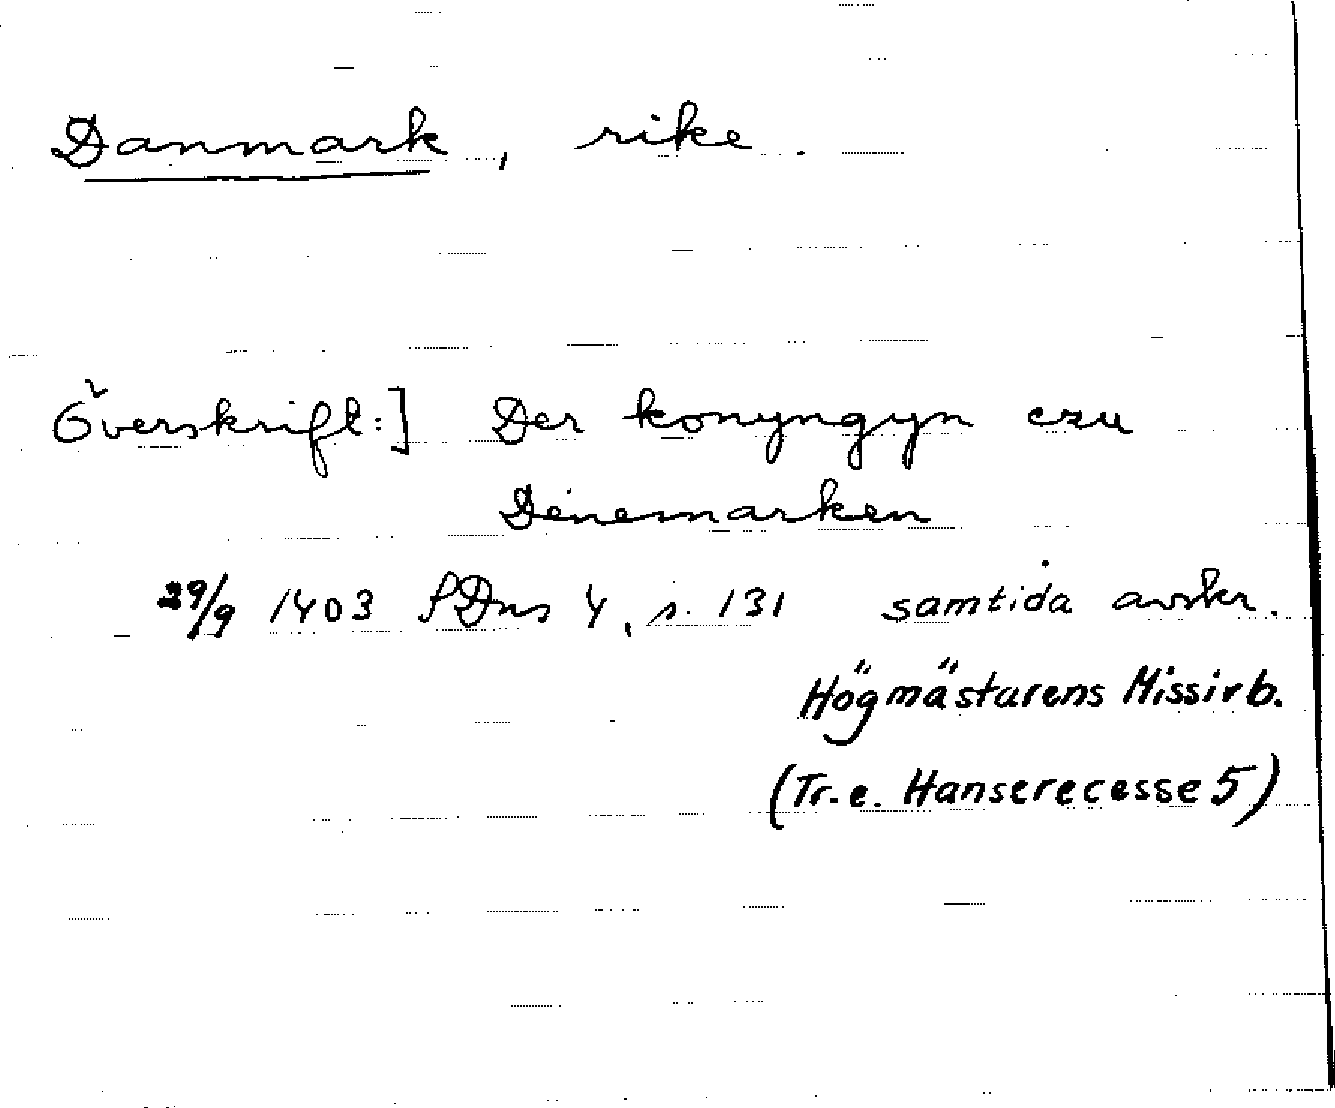 Danmark, rike.
Överskrift:] Der konyngyn czu
Denemarken
29/9 1403 SDns 4, s. 131 samtida avskr.
Högmästarens Missivb.
(Tr. e. Hanserecesse 5)